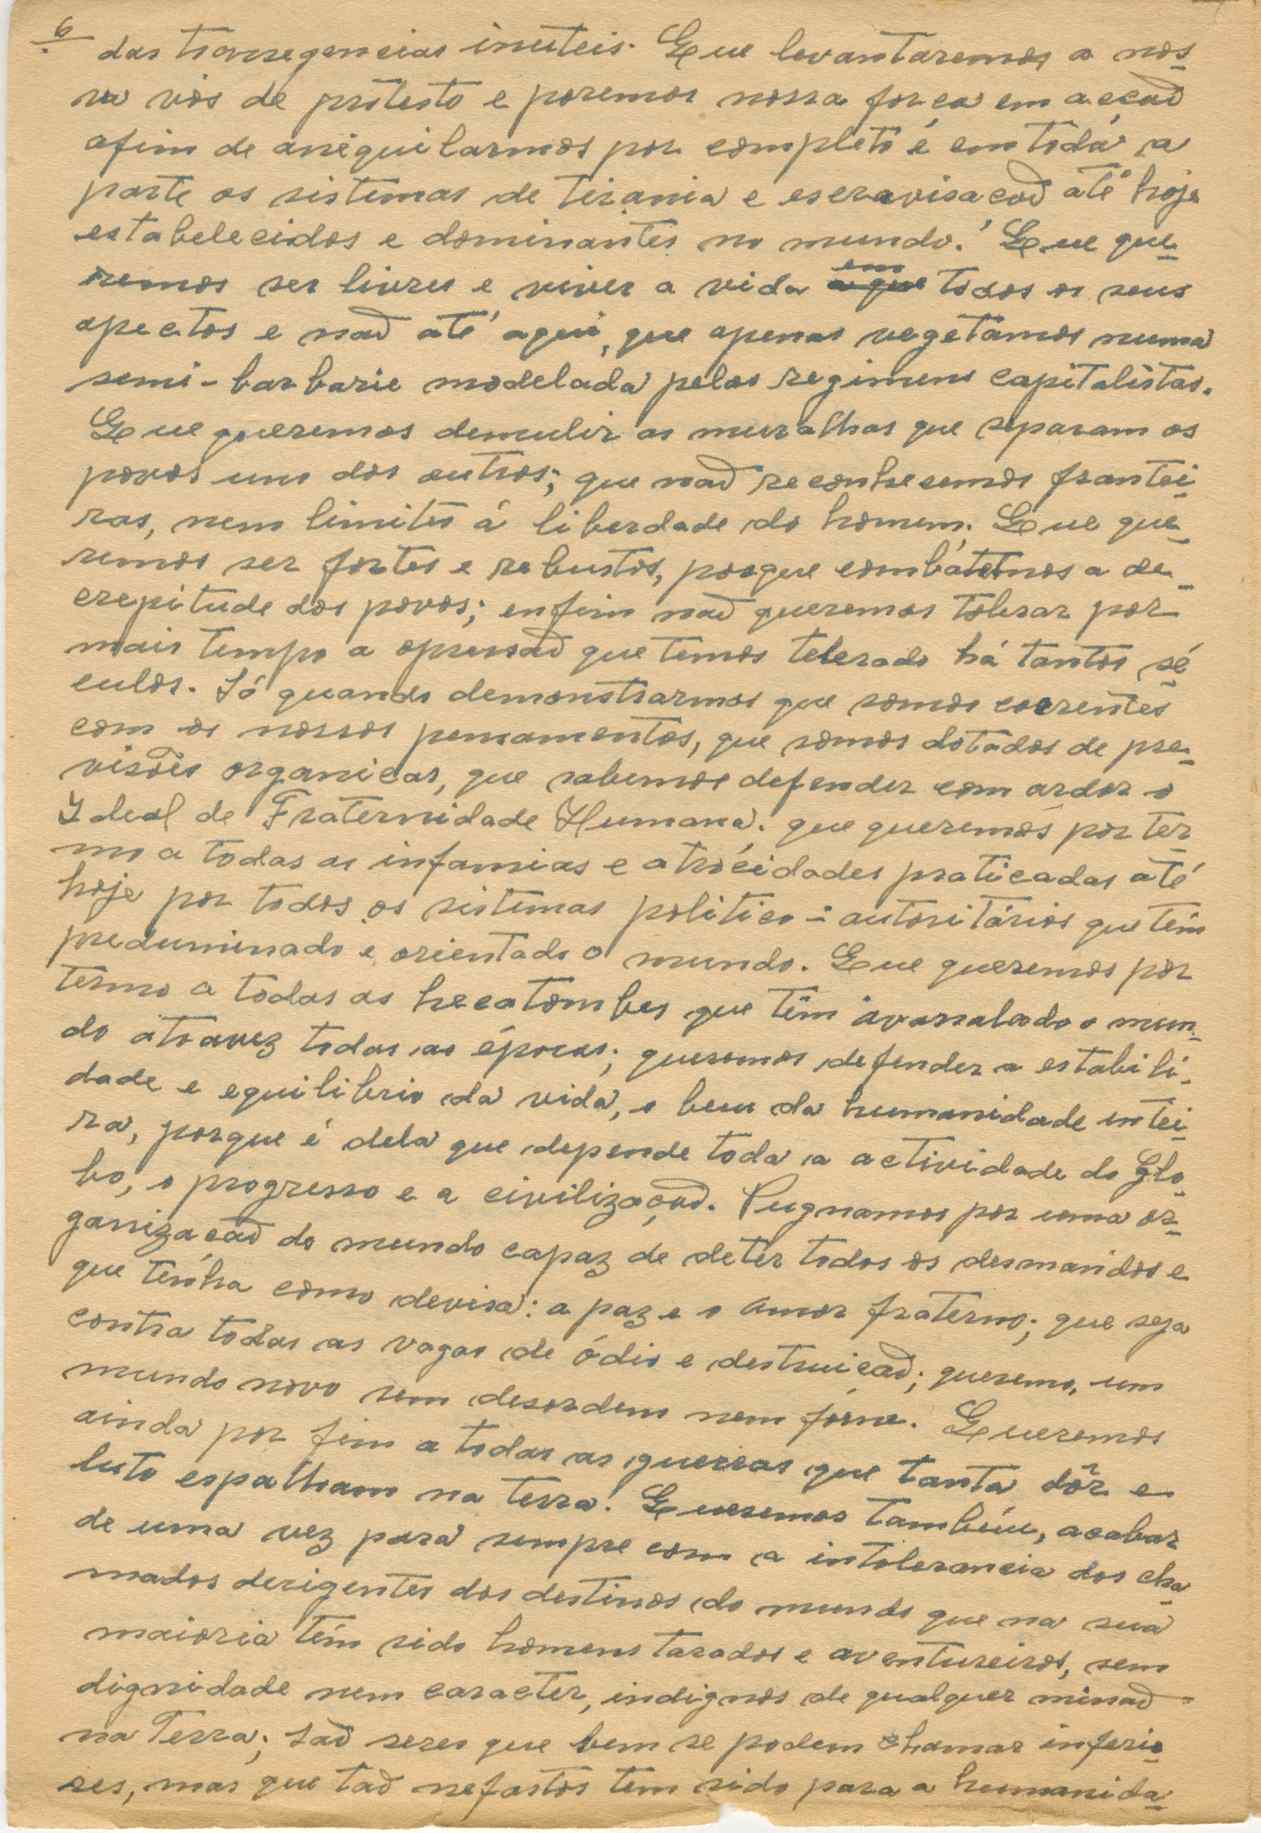 6
das transegencias inuteis. Que levantaremos a nos-
sa vós de protesto e poremos nossa força em acção
afim de aniquilarmos por completo e em toda a
parte os sistemas de tirania e escravisação até hoje
estabelecidos e dominantes no mundo. Que que-
remos ser livres e viver a vida em todos os seus
apectos e não até aqui, que apenas vegetâmos numa
semi-barbarie modelada pelos regimens capitalistas.
Que queremos demulir as muralhas que separam os
povos uns dos outros; que não reconhecemos frontei-
ras, nem limites á liberdade do homem. Que que-
remos ser fortes e robustos, porque combátemos a de-
crepitude dos povos; enfim não queremos tolerar por
mais tempo a opressão que temos tolerado há tantos sé
culos. Só quando demonstrarmos que somos coerentes
com os nossos pensamentos, que somos dotados de pre-
visões organicas, que sabemos defender com ardor o
Ideal de Fraternidade Humana. que queremos por ter
mo a todas as infamias e atrocidades praticadas até
hoje por todos os sistemas politico-autoritários que têm
preduminado e orientado o mundo. Que queremos por
termo a todas as hecatombes que têm avassalado o mun-
do atravez todas as épocas; queremos defender a estabili-
dade e equilibrio da vida, o bem da humanidade intei-
ra, porque é dela que depende toda a actividade do Glo-
bo, o progresso e a civilização. Pugnamos por uma or-
ganização do mundo capaz de deter todos os desmandos e
que tenha como devisa: a paz e o amor fraterno; que seja
contra todas as vagas de ódio e destruição; queremo, um
mundo novo sem desordem nem fóme. Queremos
ainda por fim a todas as guerras que tanta dôr e
luto espalham na terra. Queremos também, acabar
de uma vez para sempre com a intolerancia dos cha-
mados derigentes dos destinos do mundo que na sua
maioria têm sido homens tarados e aventureiros, sem
dignidade nem caracter, indignos de qualquer misão
na Terra; são seres que bem se podem chamar inferio-
res, mas que tão nefastos tem sido para a humanida-